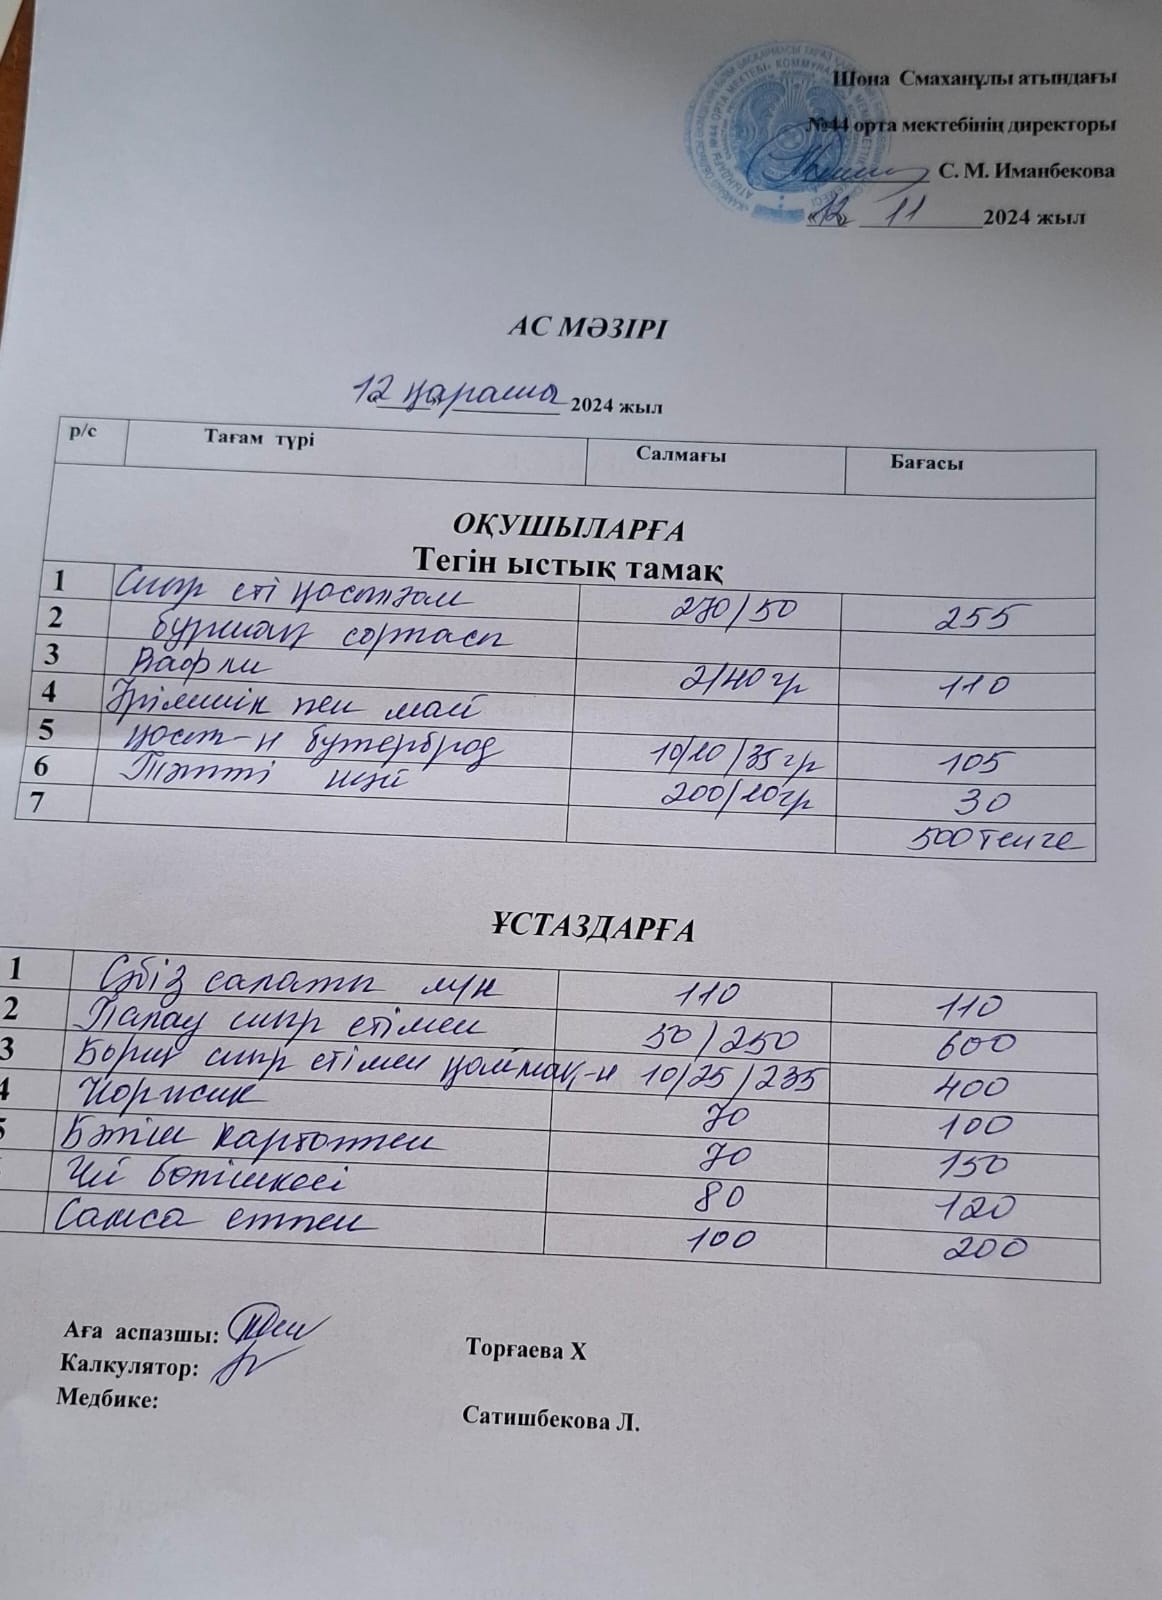 Шона Смаханұлы атындағы
№44 орта мектебінің директоры
С. М. Иманбекова
«12» 11 2024 жыл
АС МӘЗІРІ
«12» қараша 2024 жыл
р/с Тағам түрі Салмағы Бағасы
ОҚУШЫЛАРҒА
Тегін ыстық тамақ
1 Сиыр еті қосылған 270/50 255
2 бұршақ сорпасы
3 Вафли 2/40 гр 110
4 Ірімшік пен май
5 қост-н бутерброд 10/10/35 гр 105
6 Тәтті шәй 200/10 гр 30
7 500 тенге
ҰСТАЗДАРҒА
1 Сәбіз салаты лук 110 110
2 Палау сиыр етімен 50/250 600
3 Борщ сиыр етімен қаймақ-н 10/25/235 400
4 Коржик 70 100
5 Бәліш картоппен 70 150
Үй бөлішкесі 80 120
Самса етпен 100 200
Аға аспазшы: Торғаева Х
Калкулятор:
Медбике: Сатишбекова Л.